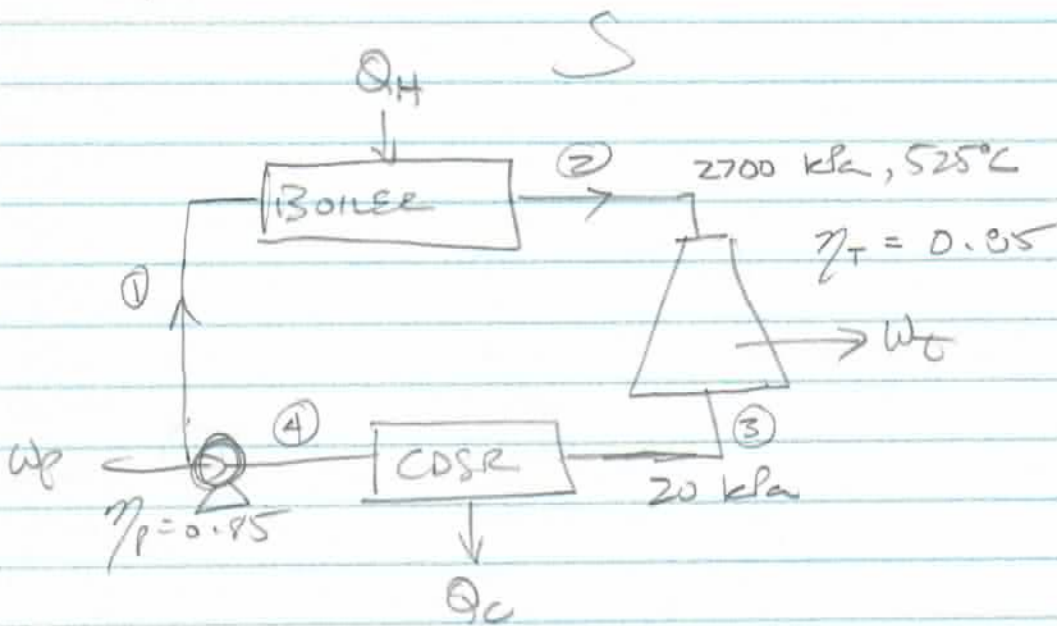 S
Q_H
BOILER
②
2700 kPa, 525°C
η_T = 0.85
①
W_t
④
③
CDSR
W_P
20 kPa
η_P = 0.85
Q_C